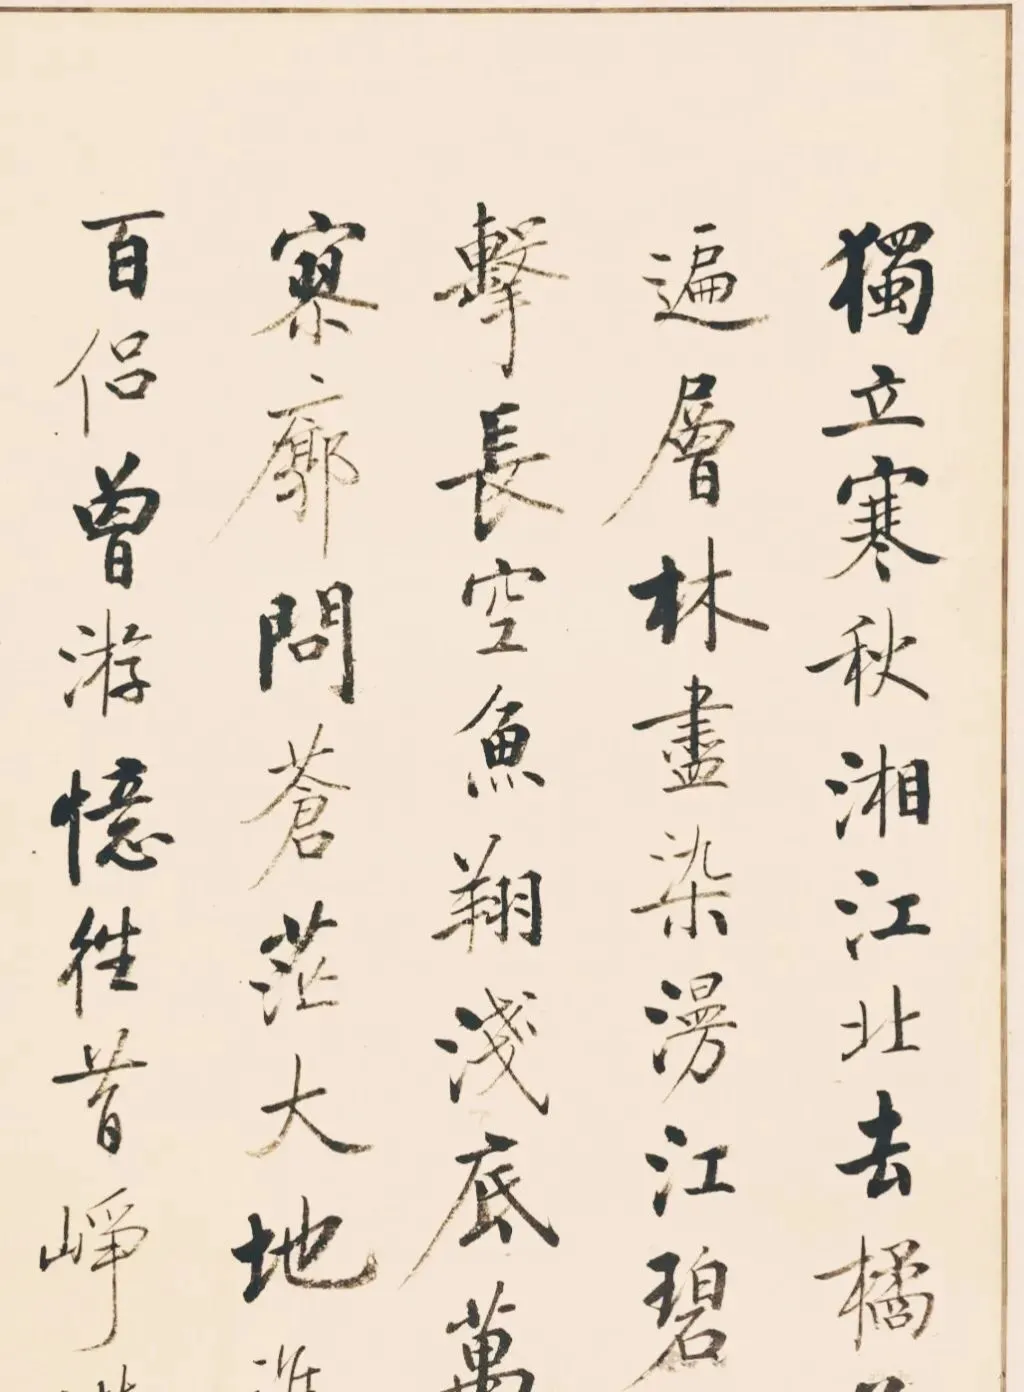 獨立寒秋湘江北去橘
遍層林盡染漫江碧
擊長空魚翔淺底萬
寥廓問蒼茫大地
百侣曾游憶往昔崢